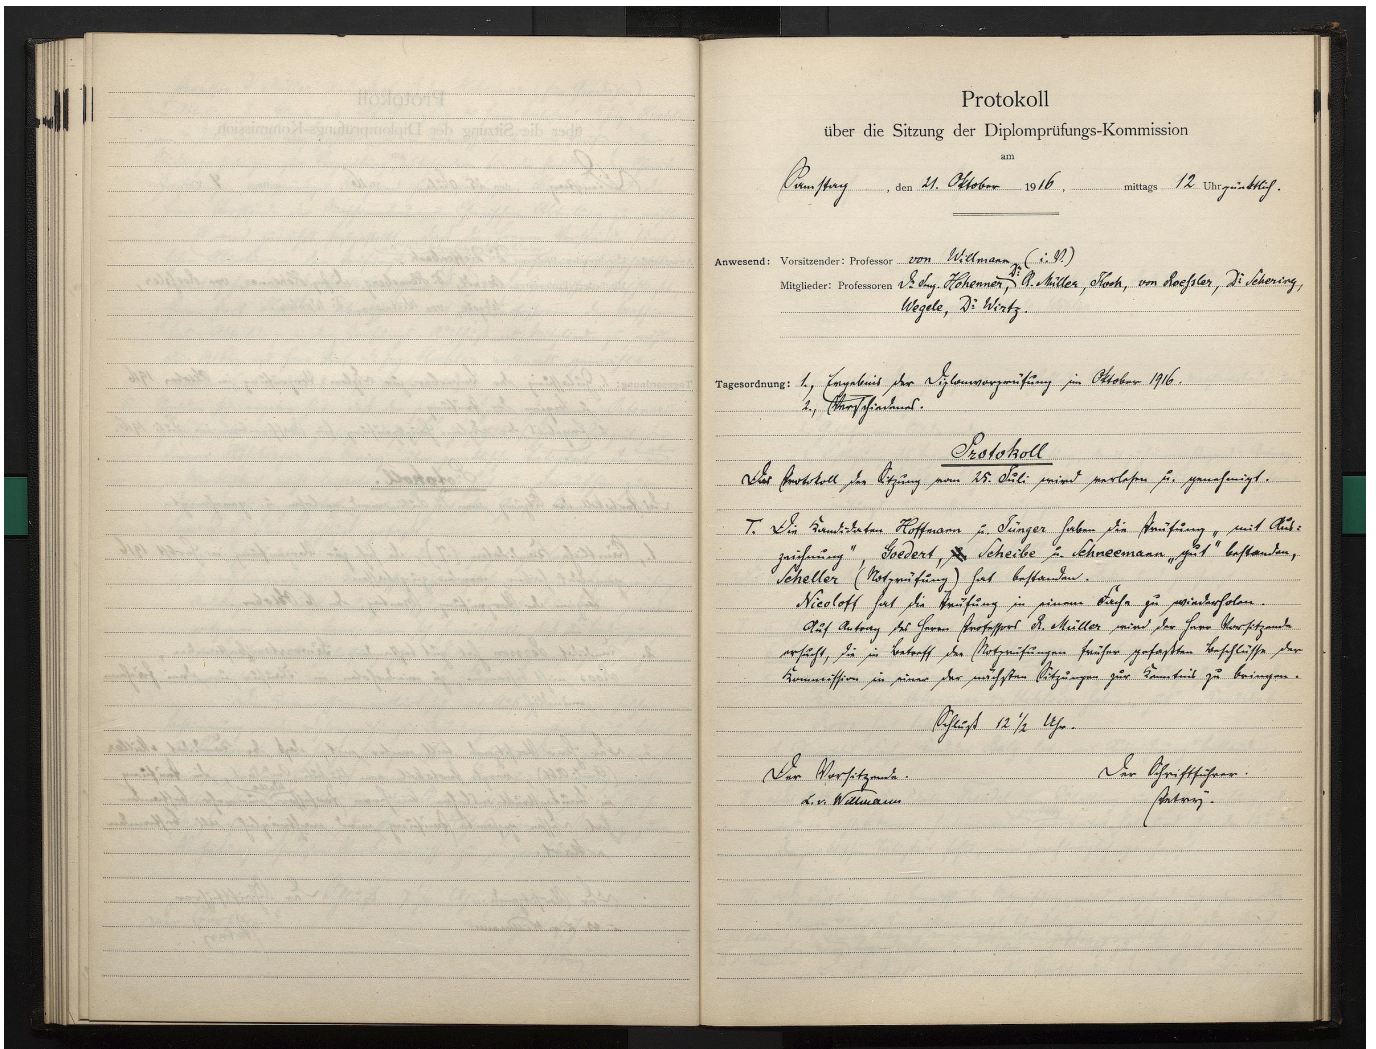 Protokoll
über die Sitzung der Diplomprüfungs-Kommission
am
Samstag, den 21. Oktober 1916, mittags 12 Uhr pünktlich.
Anwesend: Vorsitzender: Professor von Willmann (i. V.)
Mitglieder: Professoren Dr. Ing. Hohenner, Dr. R. Müller, Koch, von Roeßler, Dr. Schering,
Wegele, Dr. Wirtz.
Tagesordnung: 1., Ergebnis der Diplomvorprüfung im Oktober 1916.
2., Verschiedenes.
Protokoll
Das Protokoll der Sitzung vom 25. Juli wird verlesen u. genehmigt.
I. Die Kandidaten Hoffmann u. Jünger haben die Prüfung „mit Aus=
zeichnung", Goedert, Scheibe u. Schneemann „gut" bestanden,
Scheller (Notprüfung) hat bestanden.
Nicoloff hat die Prüfung in einem Fache zu wiederholen.
Auf Antrag des Herrn Professors R. Müller wird der Herr Vorsitzende
ersucht, die in Betreff der Notprüfungen früher gefaßten Beschlüsse der
Kommission in einer der nächsten Sitzungen zur Kenntnis zu bringen.
Schluß 12 1/2 Uhr.
Der Vorsitzende. Der Schriftführer.
L. v. Willmann Petry.